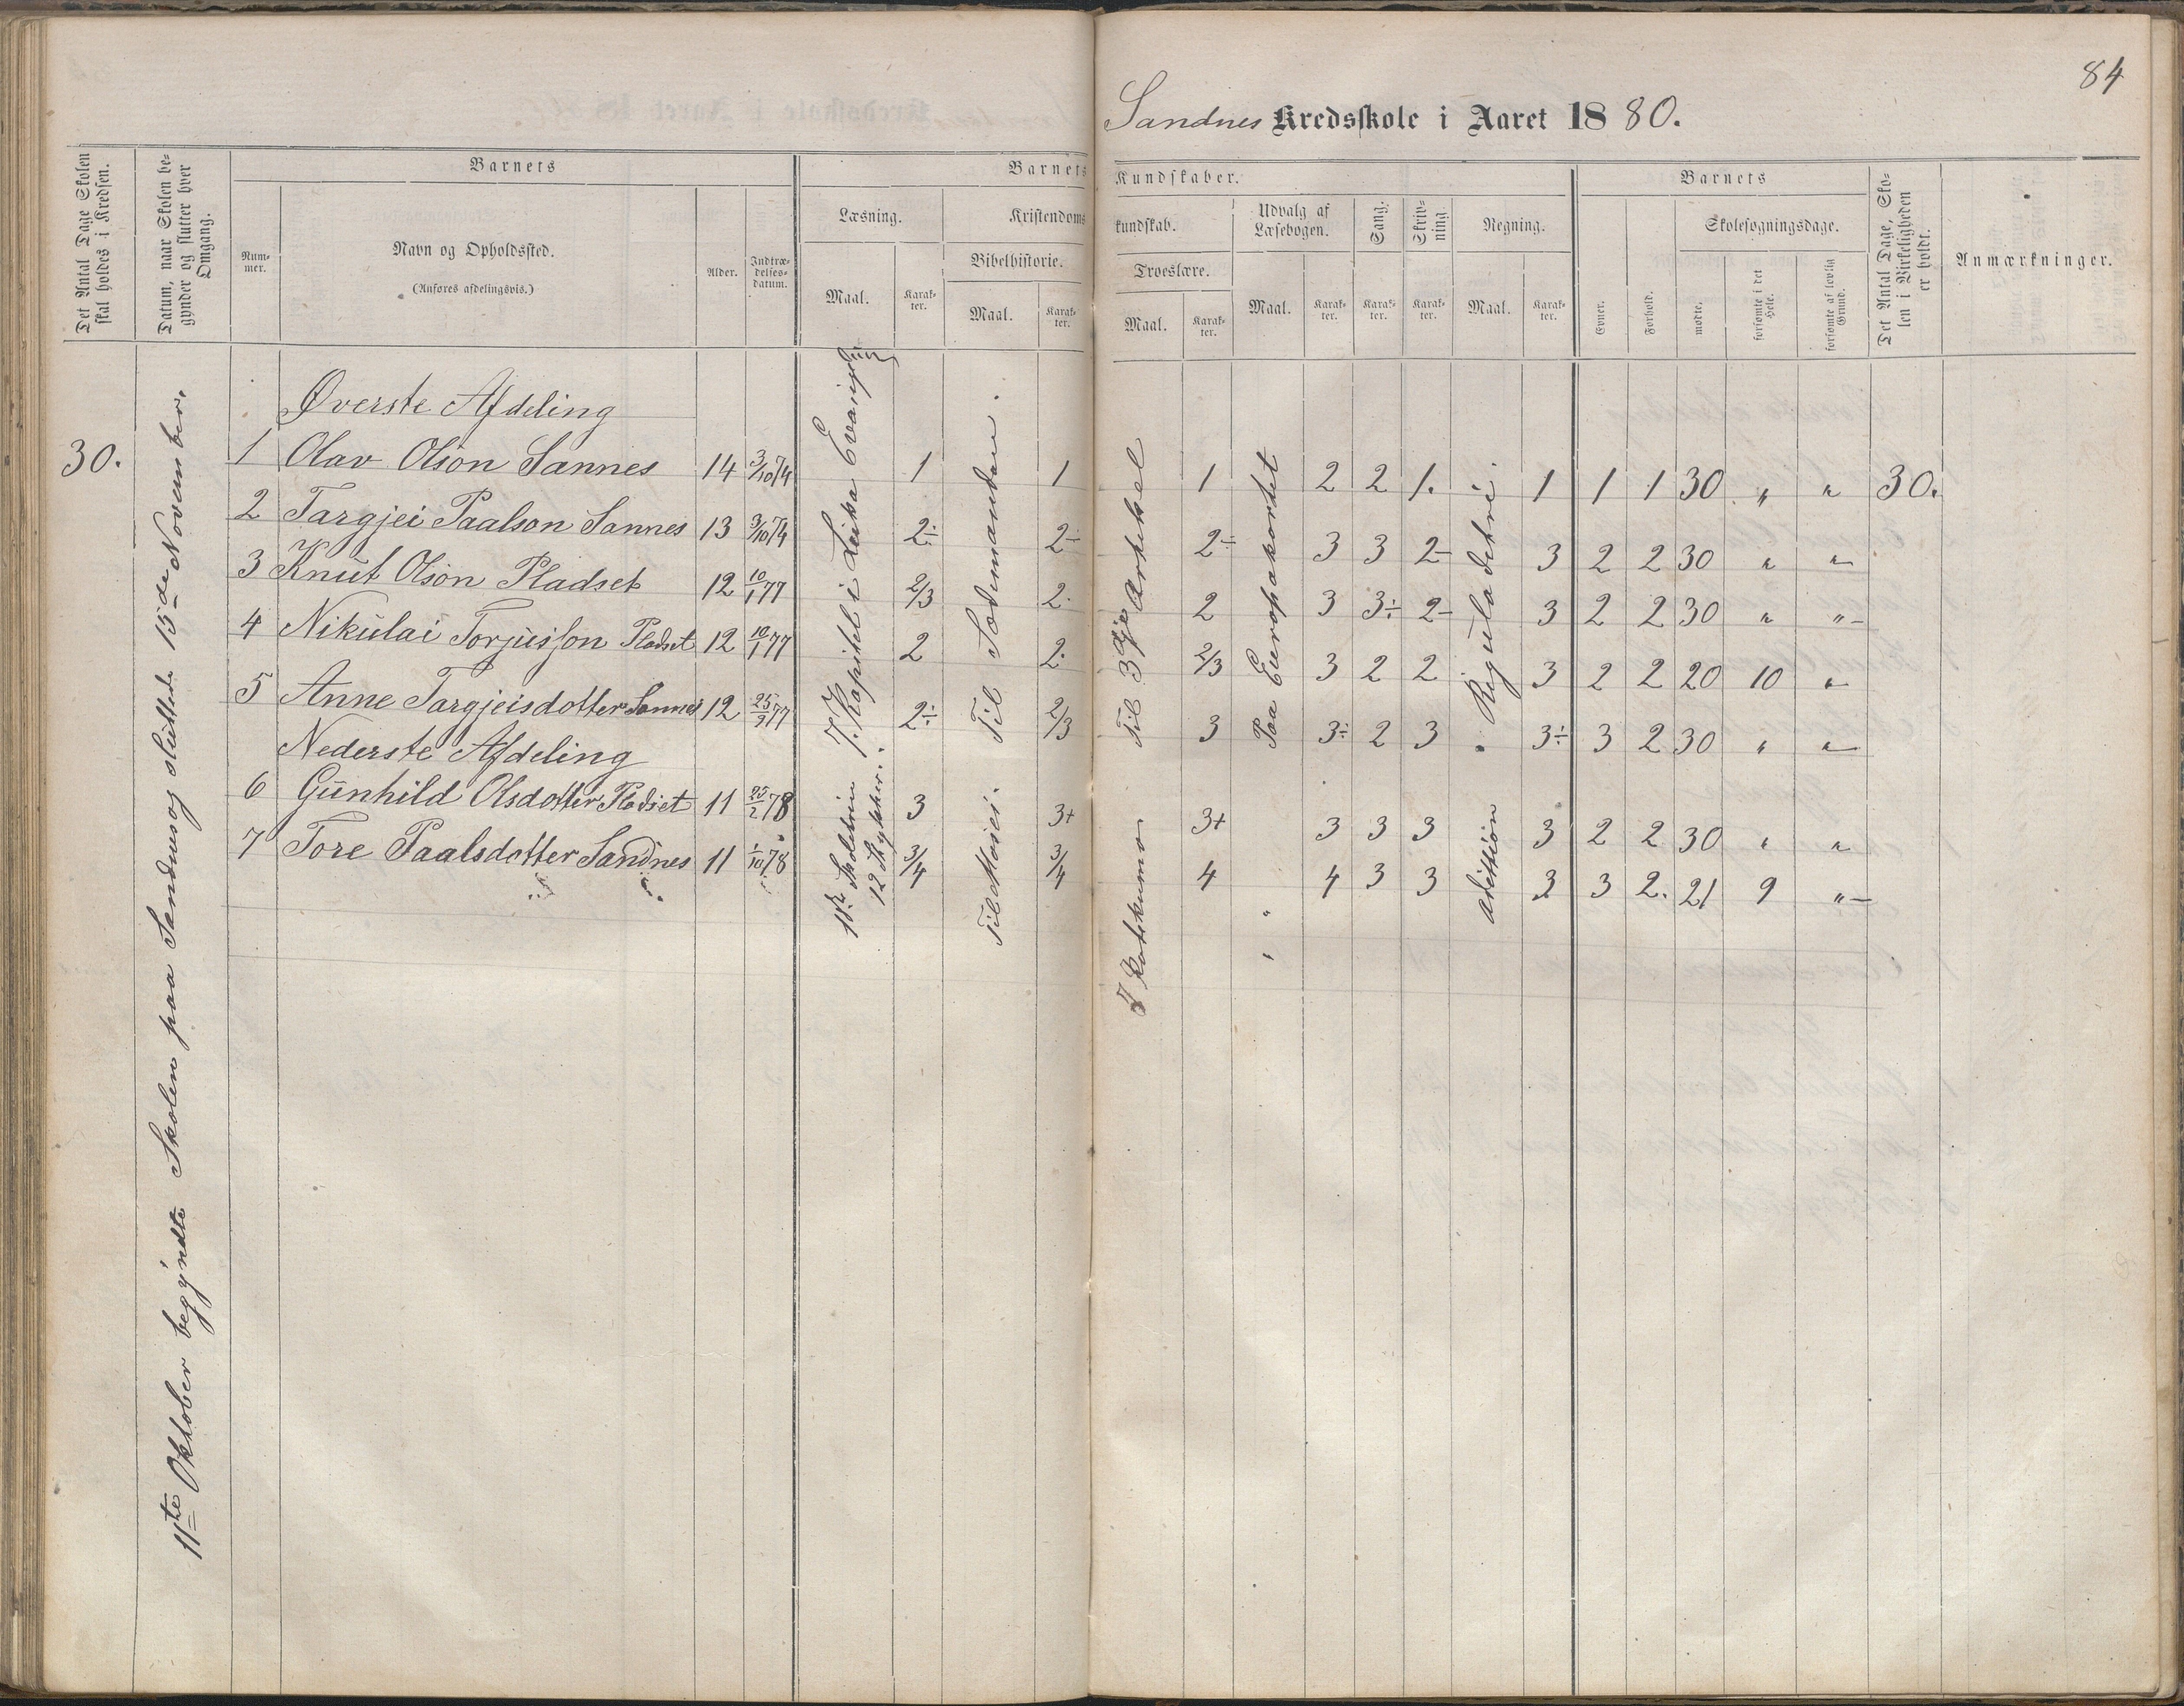 84
Sandnes Kredsskole i Aaret 1880.
Det Antal Dage Skolen skal holdes i Kredsen.
Datum, naar Skolen begynder og slutter hver Omgang.
Barnets
Nummer.
Navn og Opholdssted.
(Anføres afdelingsvis.)
Alder.
Indtrædelsesdatum.
Barnets Kundskaber.
Læsning.
Maal.
Karakter.
Kristendomskundskab.
Bibelhistorie.
Maal.
Karakter.
Troeslære.
Maal.
Karakter.
Udvalg af Læsebogen.
Maal.
Karakter.
Sang.
Karakter.
Skrivning.
Karakter.
Regning.
Maal.
Karakter.
Barnets
Evner.
Forhold.
Skolesøgningsdage.
mødte.
forsømte i det Hele.
forsømte af lovlig Grund.
Det Antal Dage, Skolen i Virkeligheden er holdt.
Anmærkninger.
30.
11te Oktober begyndte Skolen paa Sandnes og sluttede 15de November.
Øverste Afdeling
1 Olav Olson Sannes 14 3/10 74 1 1 1 2 2 1. 1 1 1 30 " " 30.
2 Targjei Paalson Sannes 13 3/10 74 2÷ 2- 2÷ 3 3 2- 3 2 2 30 " "
3 Knut Olson Pladset 12 10/1 77 2/3 2. 2 3 3÷ 2- 3 2 2 30 " "
4 Nikulai Torjusson Pladset 12 10/1 77 2 2. 2/3 3 2 2 3 2 2 20 10 "
5 Anne Targjeisdotter Sannes 12 25/2 77 2÷ 2/3 3 3÷ 2 3 3÷ 3 2 30 " "
Nederste Afdeling
6 Gunhild Olsdotter Pladset 11 25/2 78 3 3+ 3+ 3 3 3 3 2 2 30 " "
7 Tore Paalsdotter Sandnes 11 1/10 78 3/4 3/4 4 4 3 3 3 3 2. 21 9 "
7. Kapitel i Lukas Evangelium
12 Stykker.
Til Sødemanden.
Til Moses.
Til 3dje Artikel
Paa Europakortet
" "
Regula detri.
Addittion